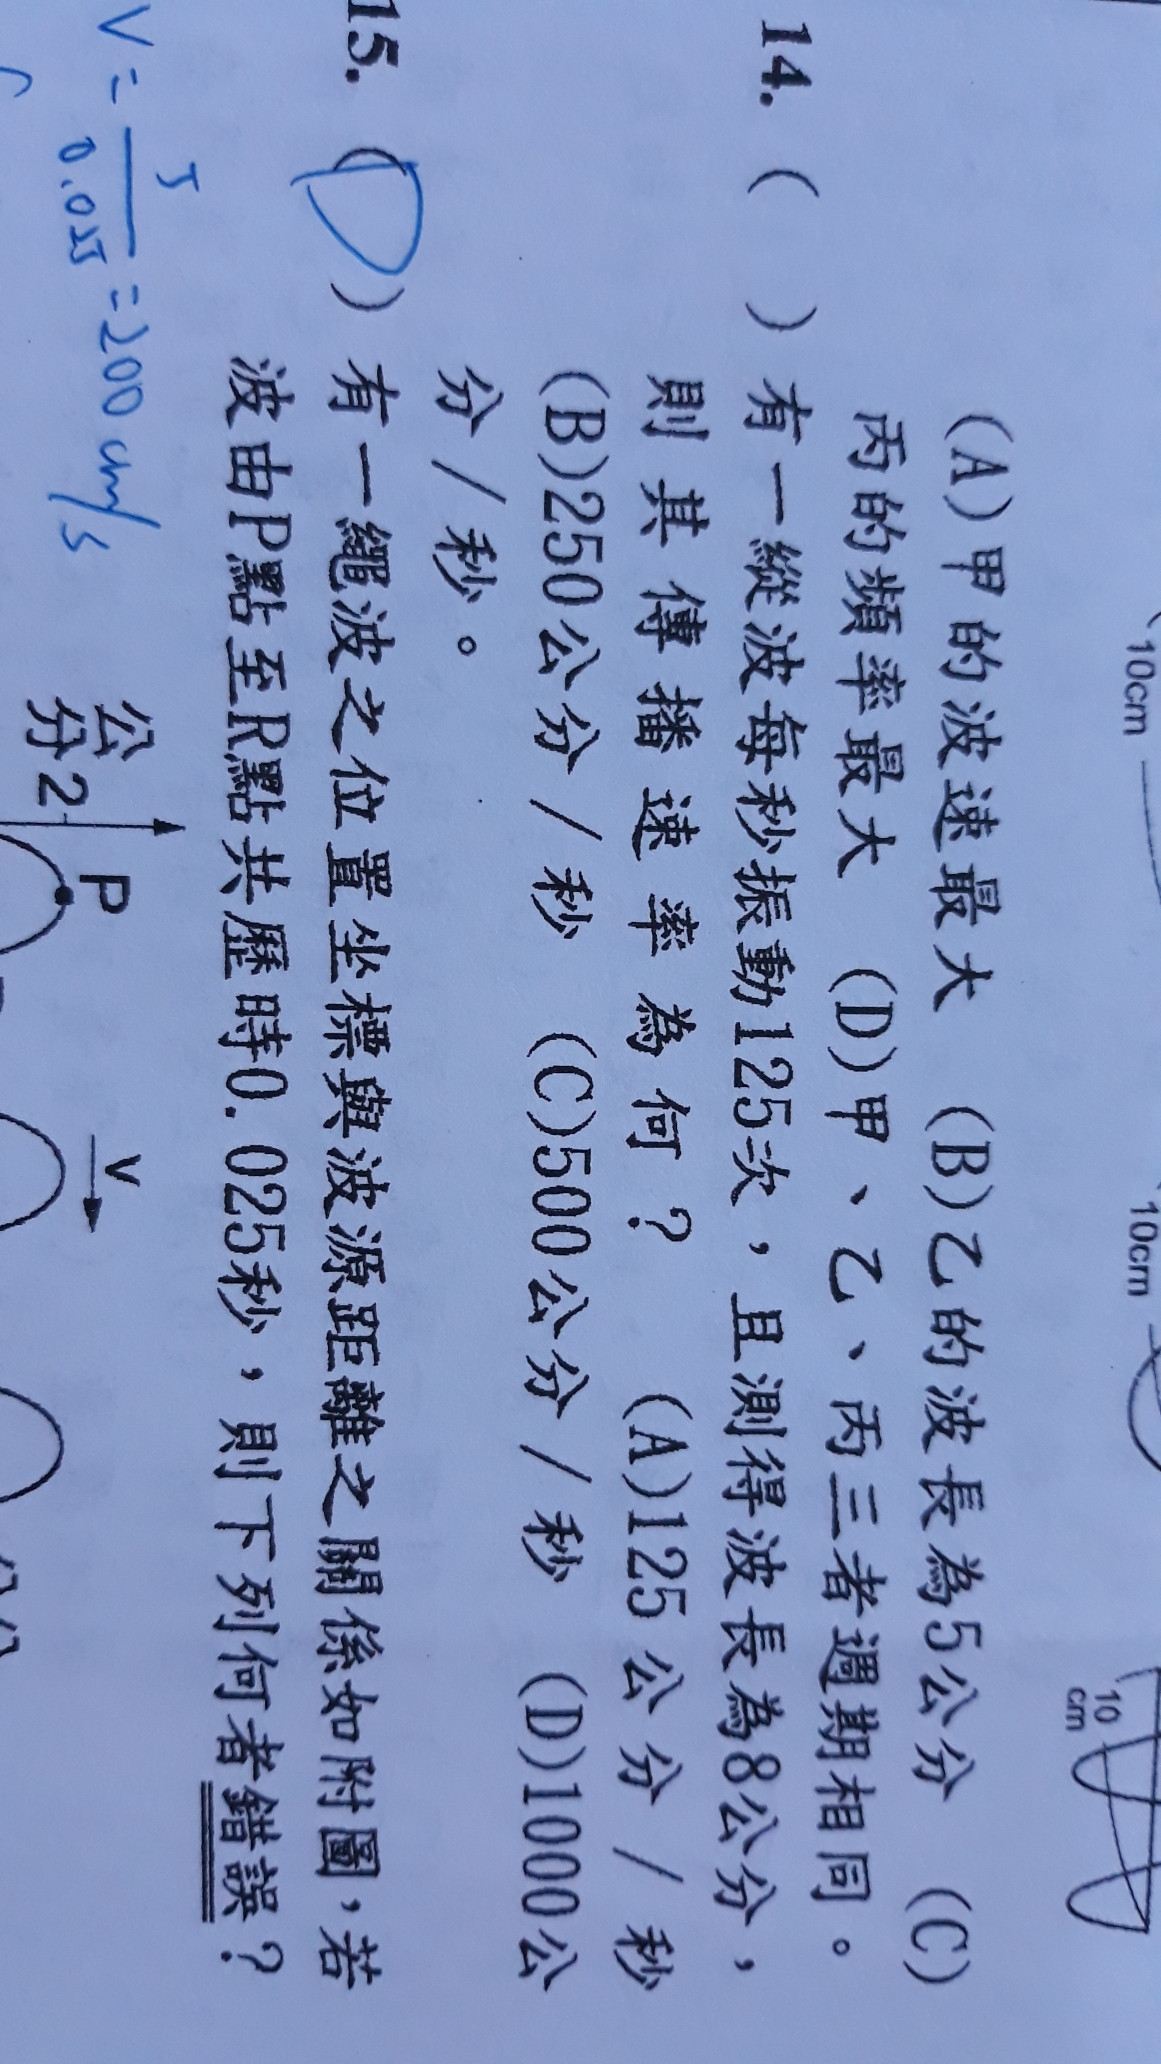 10cm 10cm 10 cm
(A)甲的波速最大 (B)乙的波長為5公分 (C)
丙的頻率最大 (D)甲、乙、丙三者週期相同。
14. ( ) 有一縱波每秒振動125次，且測得波長為8公分，
則其傳播速率為何？ (A)125公分/秒
(B)250公分/秒 (C)500公分/秒 (D)1000公
分/秒。
15. (D) 有一繩波之位置坐標與波源距離之關係如附圖，若
波由P點至R點共歷時0.025秒，則下列何者錯誤？
V = 5 / 0.025 = 200 cm/s
公分 2 P V